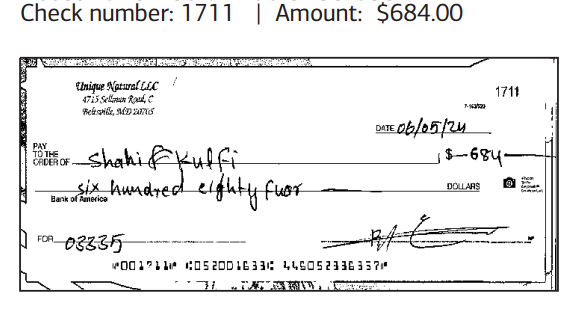 Check number: 1711 | Amount: $684.00
Unique Natural LLC
4715 Sellman Road, C
Beltsville, MD 20705
1711
7-163/520
DATE 06/05/24
PAY
TO THE
ORDER OF Shahi Kulfi $ 684
six hundred eighty fuor DOLLARS
Bank of America
FOR 03335
⑈001711⑈ ⑆052001633⑆ 446052336357⑈